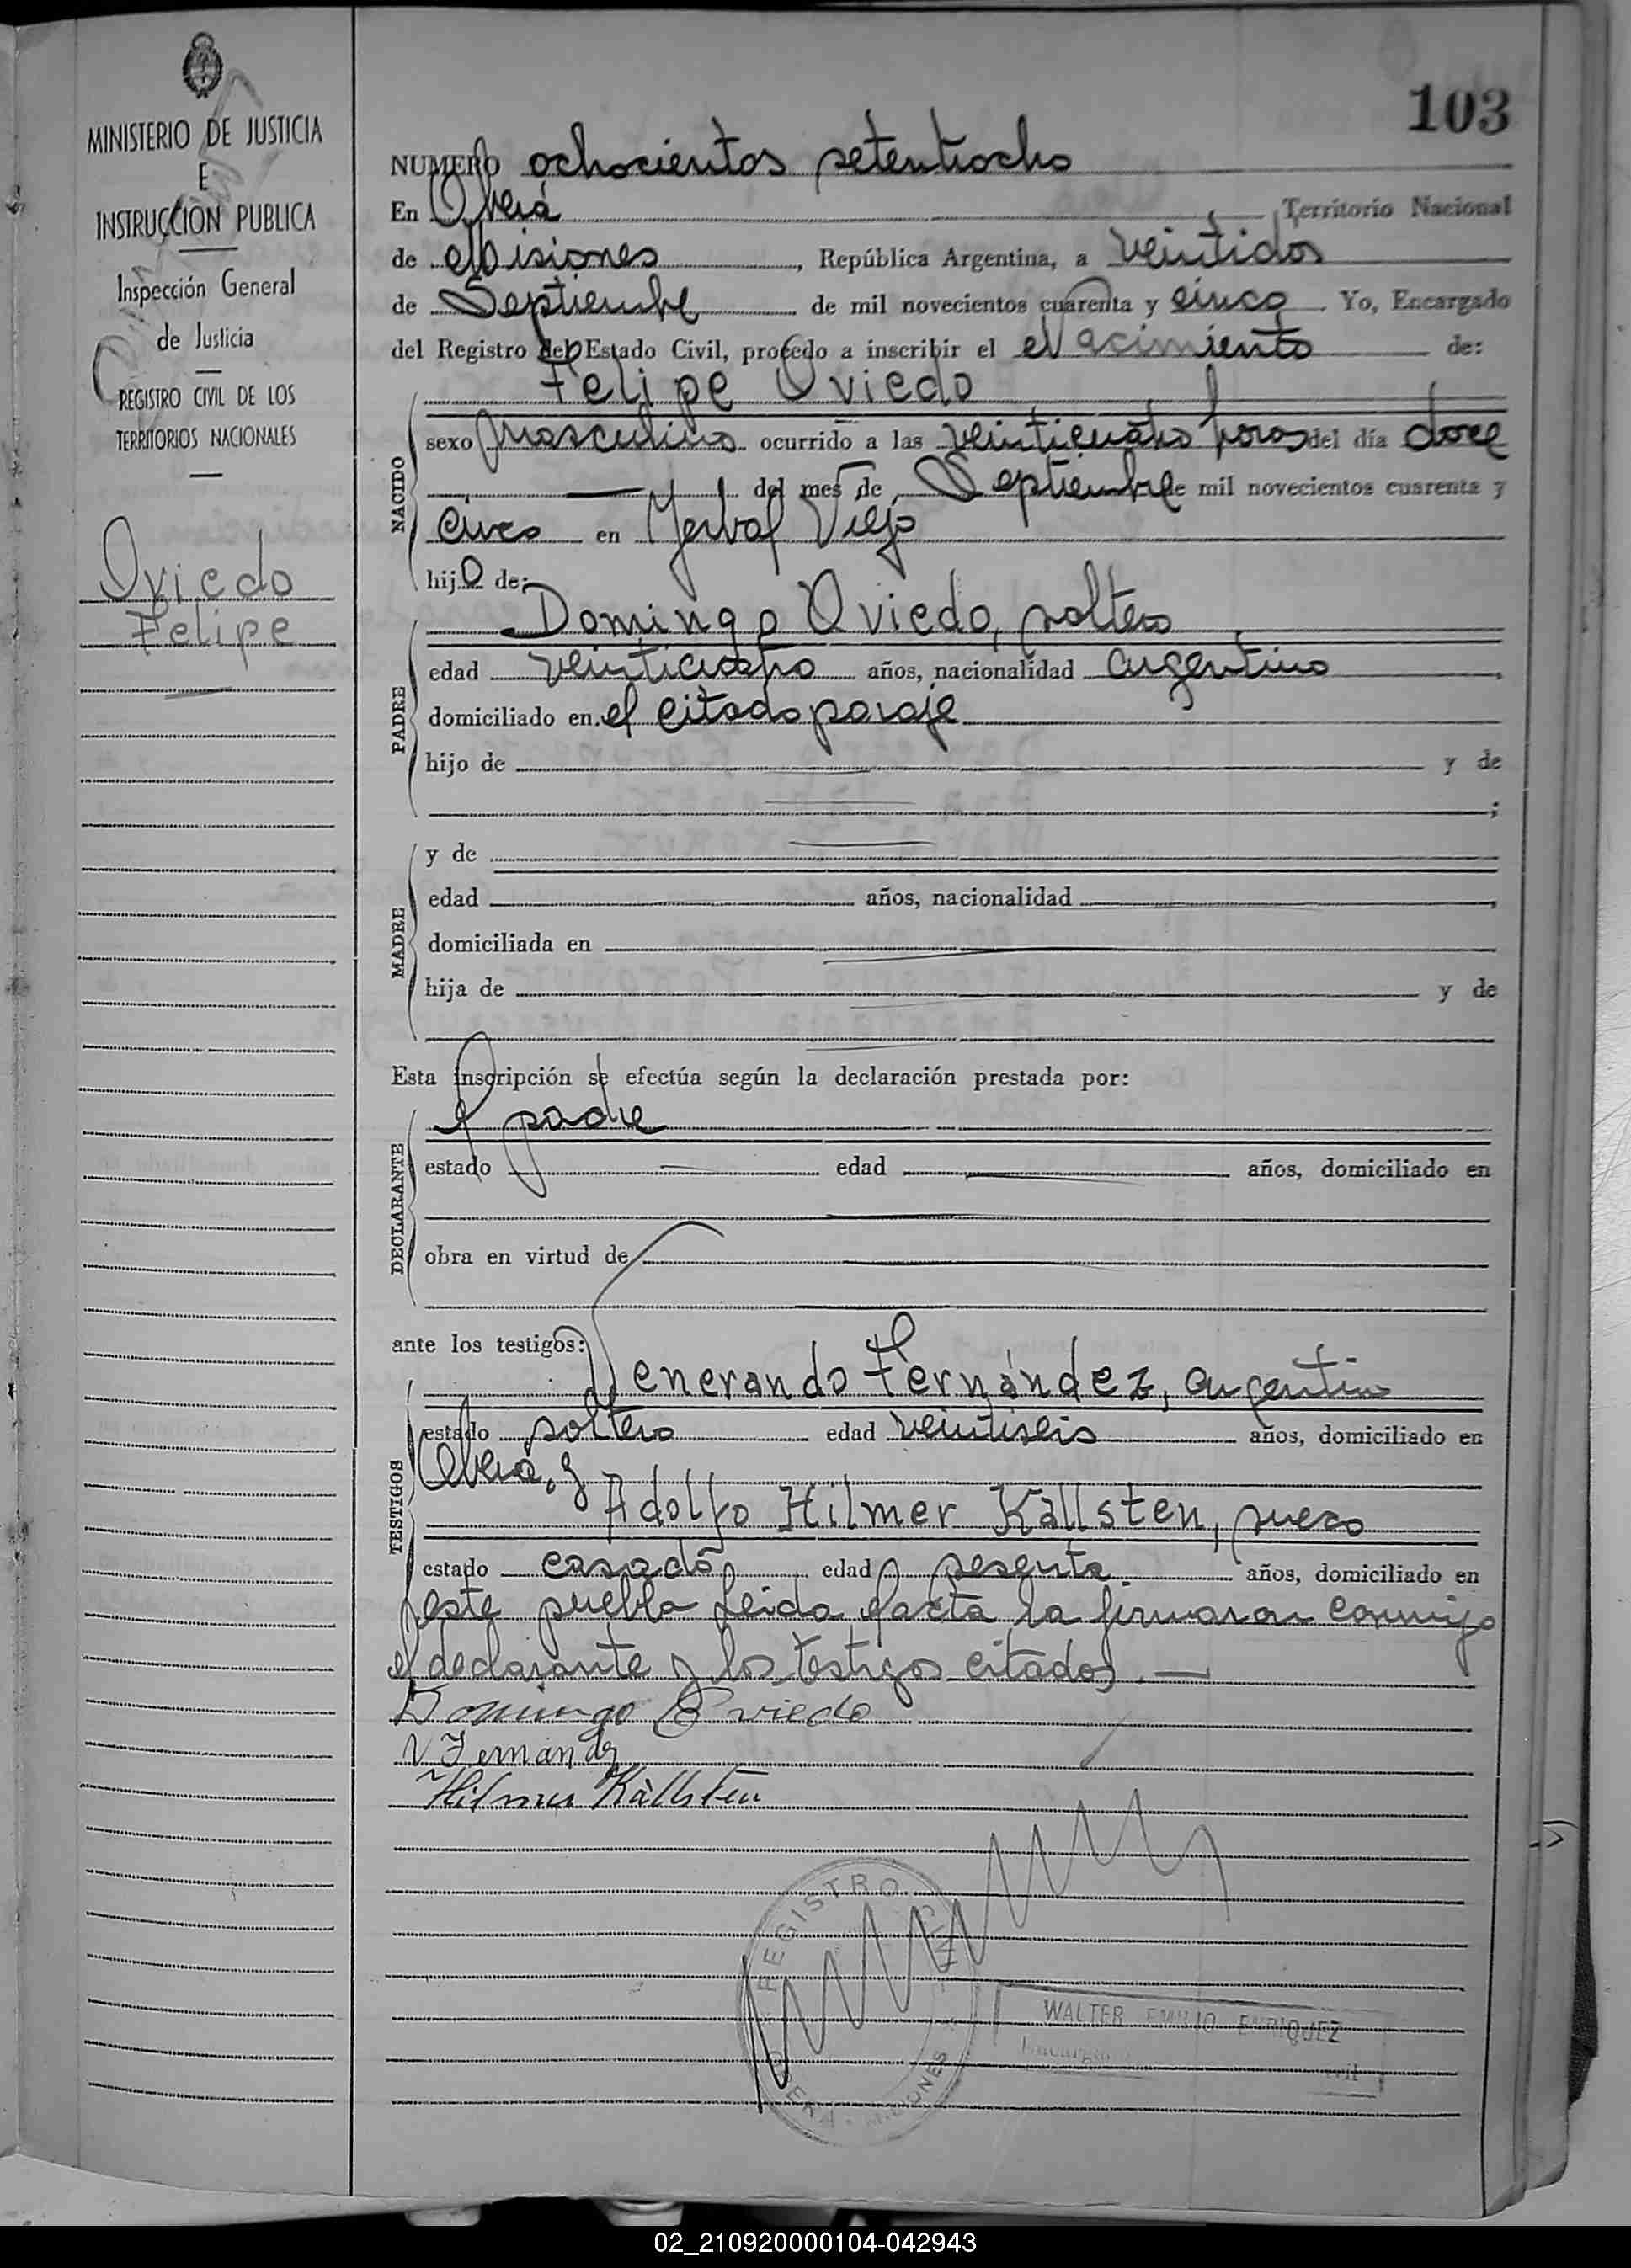 MINISTERIO DE JUSTICIA
E
INSTRUCCION PUBLICA
Inspección General
de Justicia
REGISTRO CIVIL DE LOS
TERRITORIOS NACIONALES
Oviedo
Felipe
103
NUMERO ochocientos setentiocho
En Oberá Territorio Nacional
de Misiones, República Argentina, a veintidos
de Septiembre de mil novecientos cuarenta y cinco. Yo, Encargado
del Registro del Estado Civil, procedo a inscribir el Nacimiento de:
Felipe Oviedo
NACIDO
sexo masculino ocurrido a las veinticuatro horas del día doce
del mes de Septiembre de mil novecientos cuarenta y
cinco en Yerbal Viejo
hijo de:
Domingo Oviedo, soltero
PADRE
edad veinticuatro años, nacionalidad argentino,
domiciliado en el citado paraje
hijo de y de
;
MADRE
y de
edad años, nacionalidad,
domiciliada en
hija de y de
Esta inscripción se efectúa según la declaración prestada por:
DECLARANTE
el padre
estado edad años, domiciliado en
obra en virtud de
ante los testigos:
Venerando Fernández, argentino
TESTIGOS
estado soltero edad veintiseis años, domiciliado en
Oberá, y
Adolfo Hilmer Källsten, sueco
estado casado edad sesenta años, domiciliado en
este pueblo Leida el acta la firmaron conmigo
el declarante y los testigos citados.—
Domingo Oviedo
V Fernandez
Hilmer Källsten
REGISTRO CIVIL
OBERA - MISIONES
WALTER EMILIO ENRIQUEZ
02_210920000104-042943